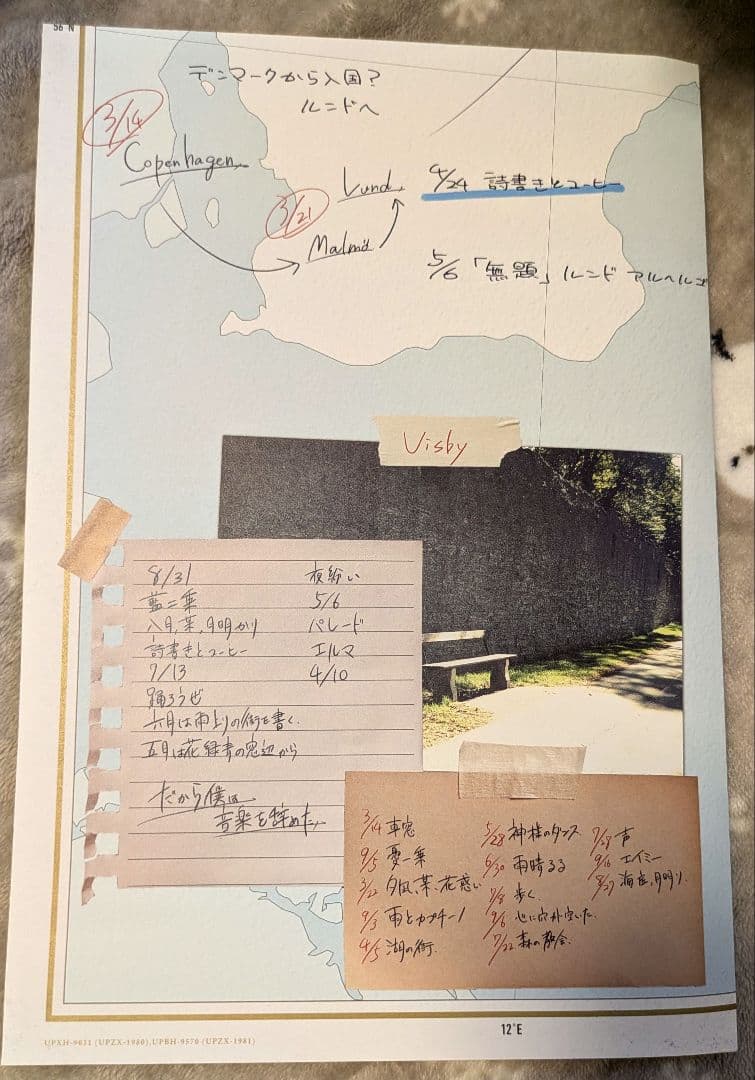 56°N
デンマークから入国?
ルンドへ
3/14
Copenhagen
3/21
Malmö
Lund
4/24 詩書きとコーヒー
5/6 「無題」ルンド アルヘルゴ
Visby
8/31
藍二乗
八月、某、月明かり
詩書きとコーヒー
7/13
踊ろうぜ
六月は雨上りの街を書く
五月は花緑青の窓辺から
夜紛い
5/6
パレード
エルマ
4/10
だから僕は
音楽を辞めた
3/14 車窓
9/5 憂一乗
3/22 夕凪、某、花惑い
9/3 雨とカプチーノ
4/5 湖の街
5/28 神様のダンス
6/30 雨晴るる
7/8 歩く
9/6 心に穴が空いた
7/22 森の教会
声
エイミー
8/27 海底、月明り
12°E
UPXH-9011 (UPZX-1980),UPBH-9570 (UPZX-1981)